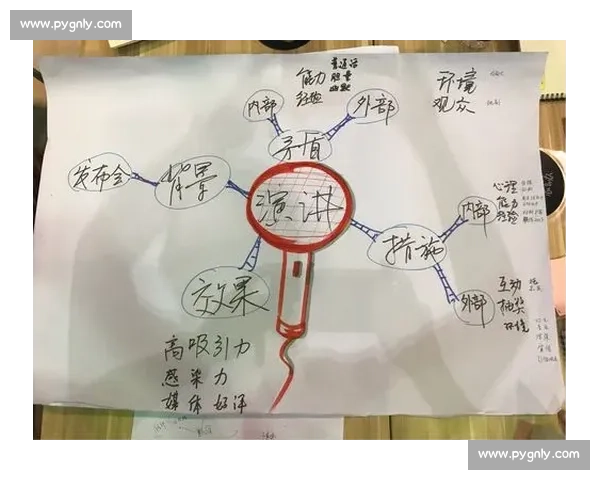 www.pygnly.com
能力
经验
普通话
胆量
幽默
环境
观众
内部
外部
矛盾
发布会
背景
演讲
措施
内部
心理
能力
经验
外部
互动
抽奖
环境
效果
高吸引力
感染力
媒体好评
www.pygnly.com